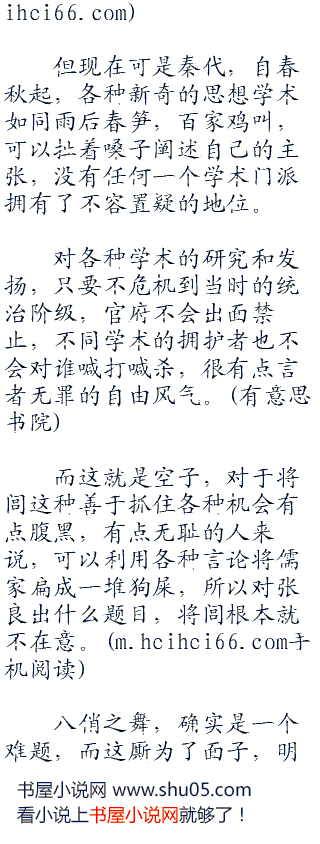 ihci66.com)
但现在可是秦代，自春
秋起，各种新奇的思想学术
如同雨后春笋，百家鸡叫，
可以扯着嗓子阐述自己的主
张，没有任何一个学术门派
拥有了不容置疑的地位。
对各种学术的研究和发
扬，只要不危机到当时的统
治阶级，官府不会出面禁
止，不同学术的拥护者也不
会对谁喊打喊杀，很有点言
者无罪的自由风气。(有意思
书院)
而这就是空子，对于将
闾这种善于抓住各种机会有
点腹黑，有点无耻的人来
说，可以利用各种言论将儒
家扁成一堆狗屎，所以对张
良出什么题目，将闾根本就
不在意。(m.hcihci66.com手
机阅读)
八俏之舞，确实是一个
难题，而这厮为了面子，明
书屋小说网 www.shu05.com
看小说上书屋小说网就够了！